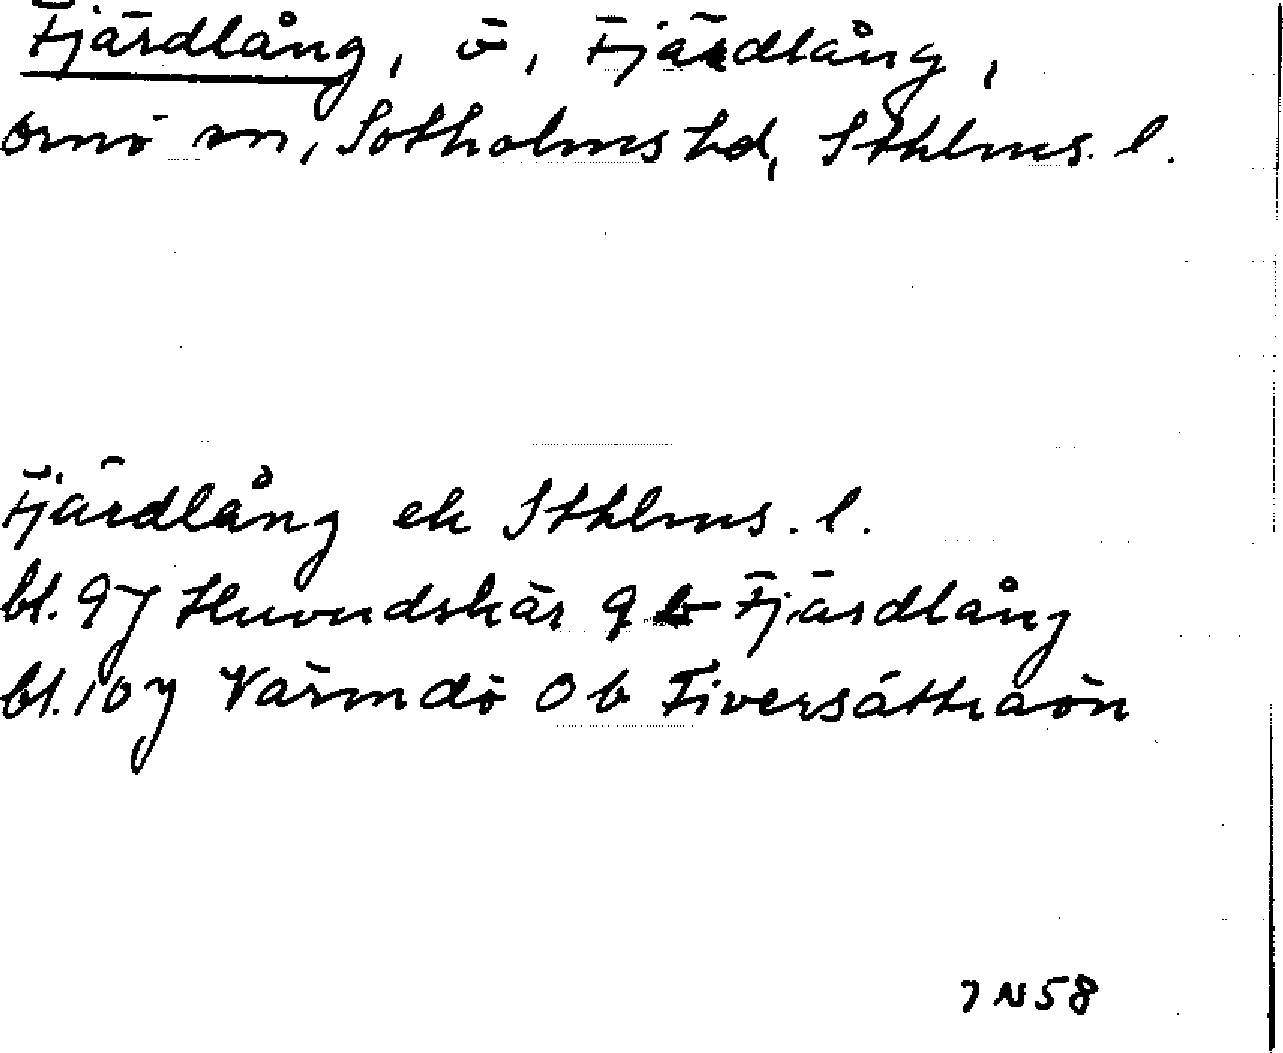 Fjärdlång, ö, Fjärdlång,
Ornö sn, Sotholms hd, Sthlms. l.
Fjärdlång ek Sthlms. l.
bl. 97 Huvudskär 9 b Fjärdlång
bl. 107 Värmdö 0 b Fiversätraön
7 N 58